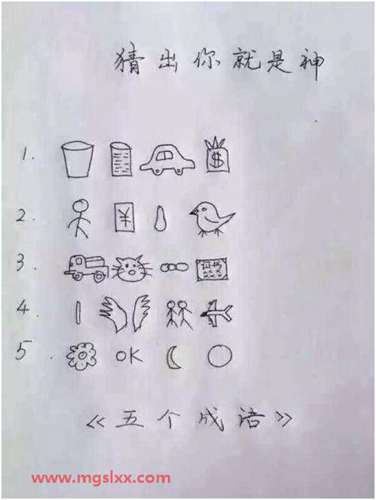 猜出你就是神
1.
$
2.
¥
3.
4.
5.
OK
《五个成语》
www.mgslxx.com